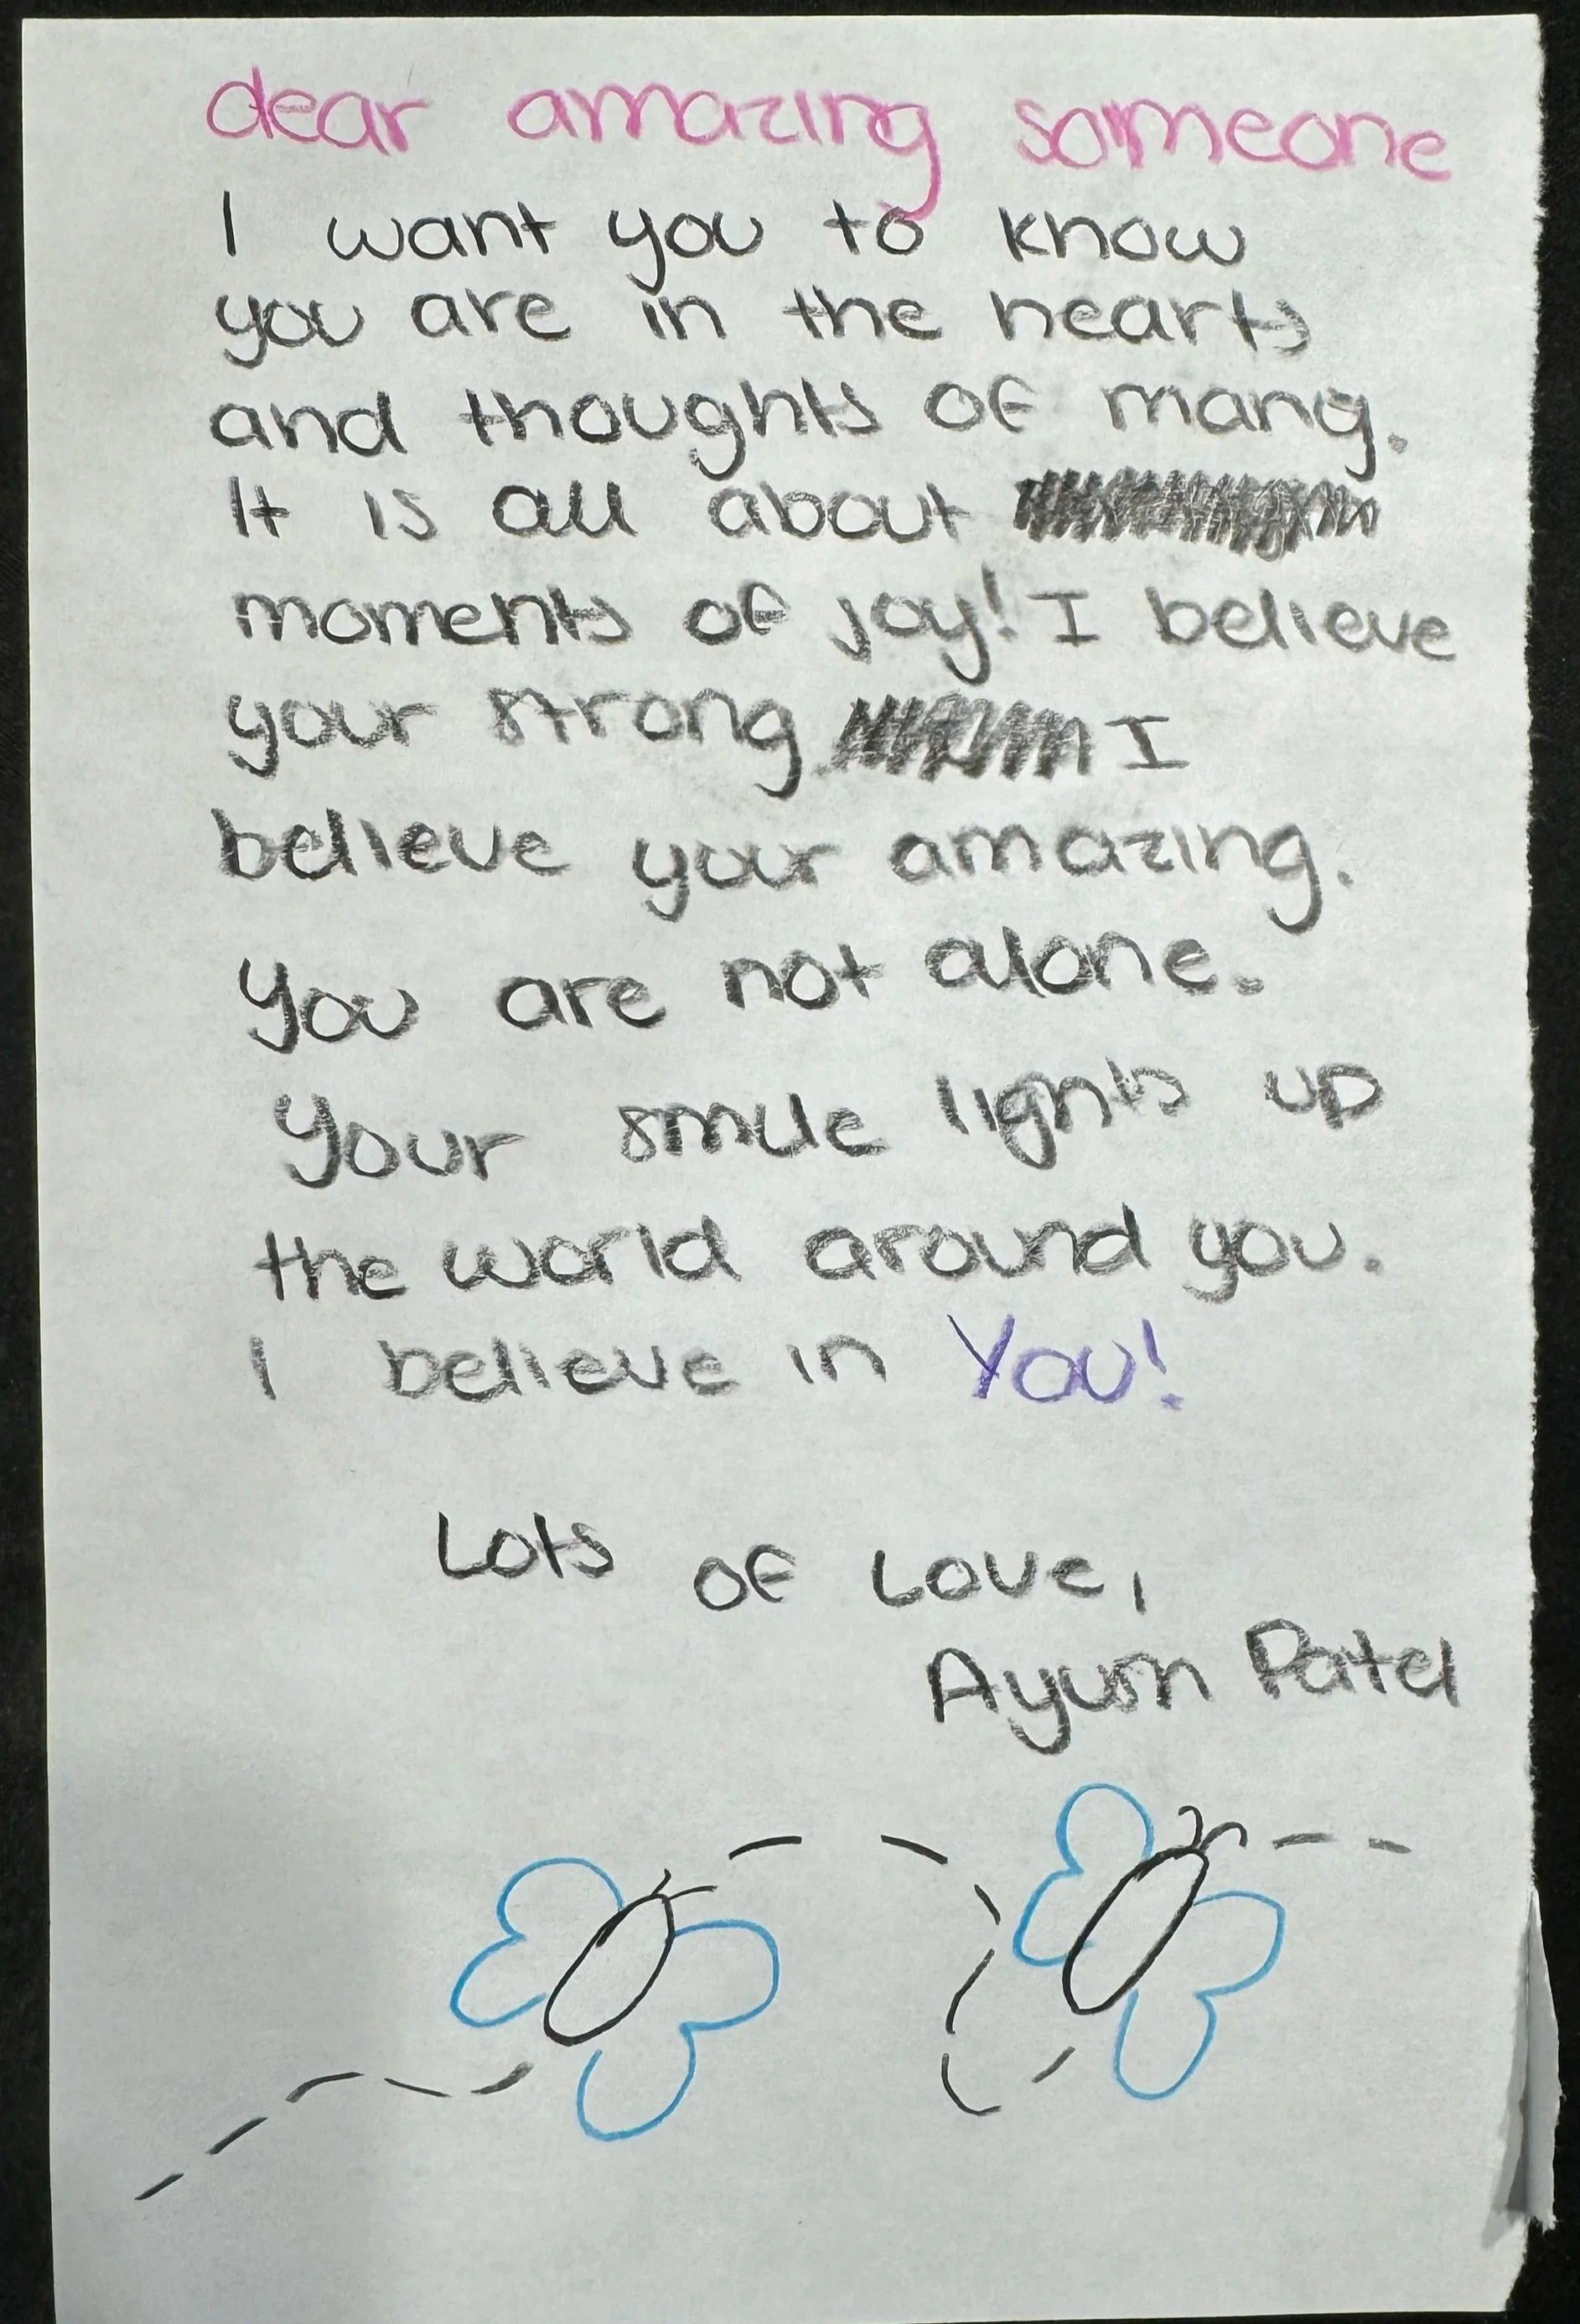 dear amazing someone
I want you to know
you are in the hearts
and thoughts of many.
It is all about
moments of joy! I believe
your strong I
believe your amazing.
You are not alone.
Your smile lights up
the world around you.
I believe in You!
Lots of Love,
Ayum Patel